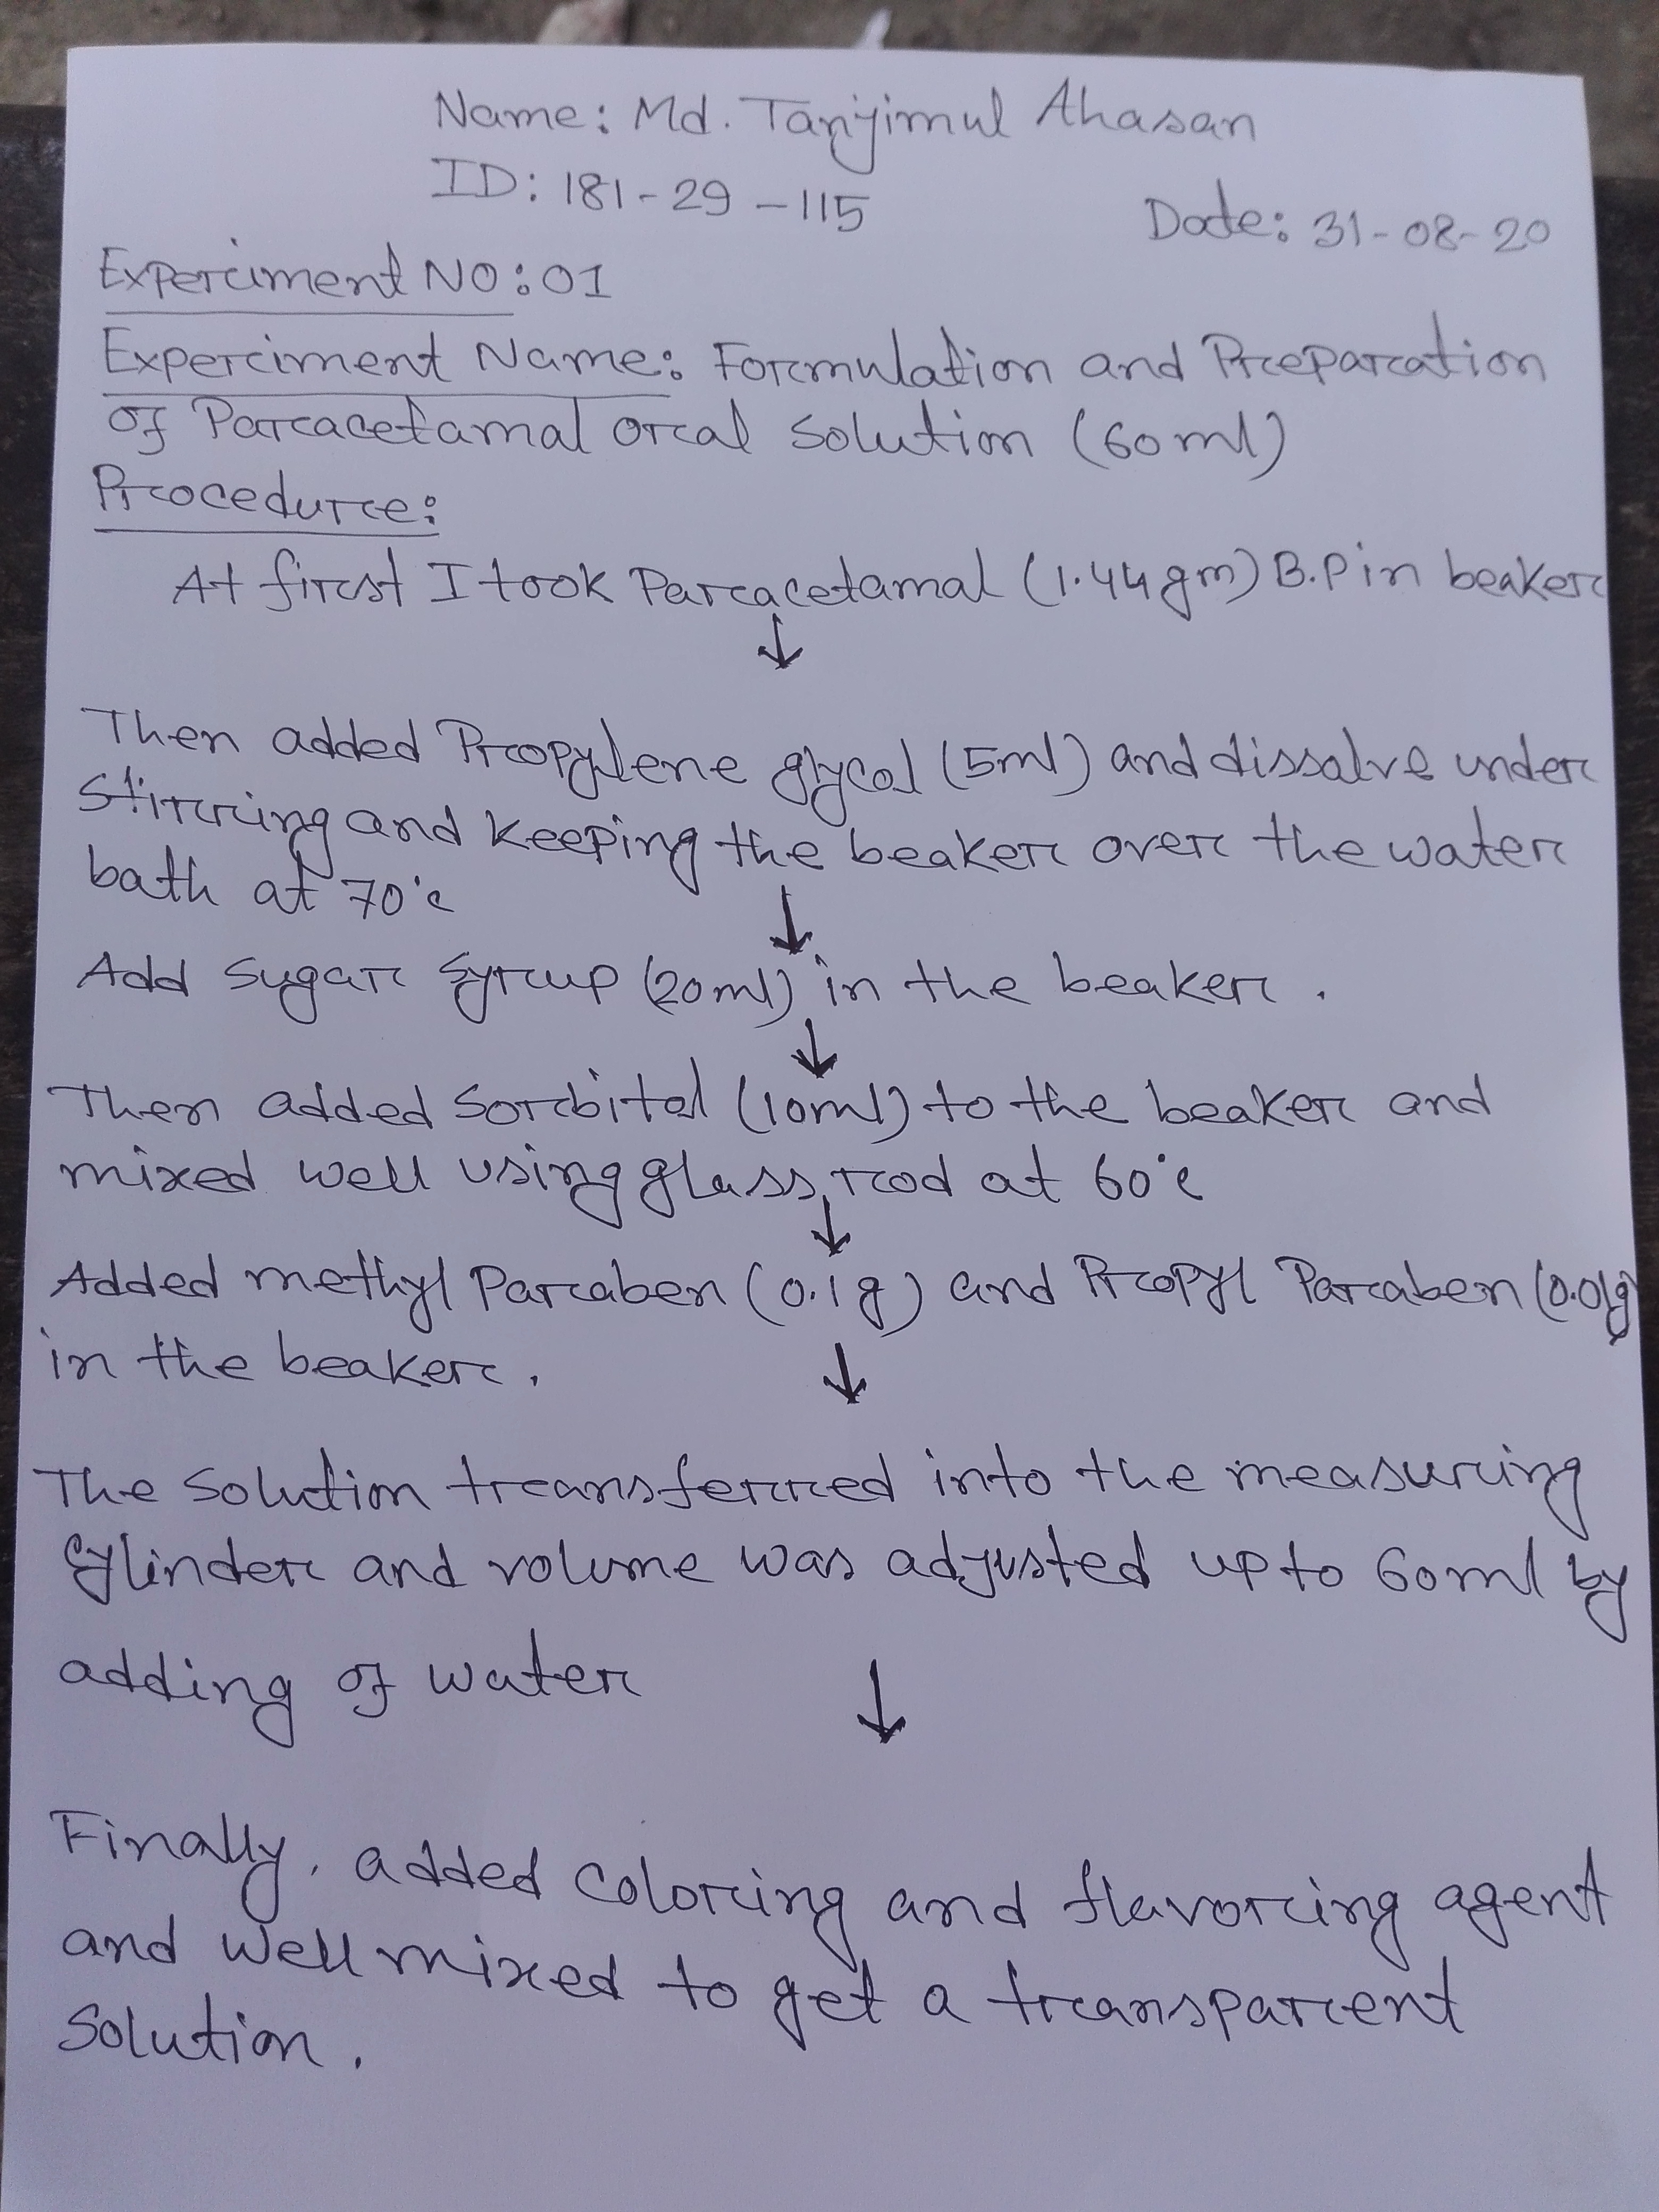 Name: Md. Tanjimul Ahasan
ID: 181-29-115
Date: 31-08-20
Experiment NO: 01
Experiment Name: Formulation and Preparation
of Paracetamal oral solution (60ml)
Procedure:
At first I took Paracacetamal (1.44gm) B.P in beaker
↓
Then added Propylene glycol (5ml) and dissolve under
stirring and keeping the beaker over the water
bath at 70°c
↓
Add sugar syrup (20ml) in the beaker.
↓
Then added sorbitol (10ml) to the beaker and
mixed well using glass rod at 60°c
↓
Added methyl Paraben (0.1g) and Propyl Paraben (0.01g)
in the beaker.
↓
The solution transferred into the measuring
cylinder and volume was adjusted up to 60ml by
adding of water
↓
Finally, added coloring and flavoring agent
and well mixed to get a transparent
solution.